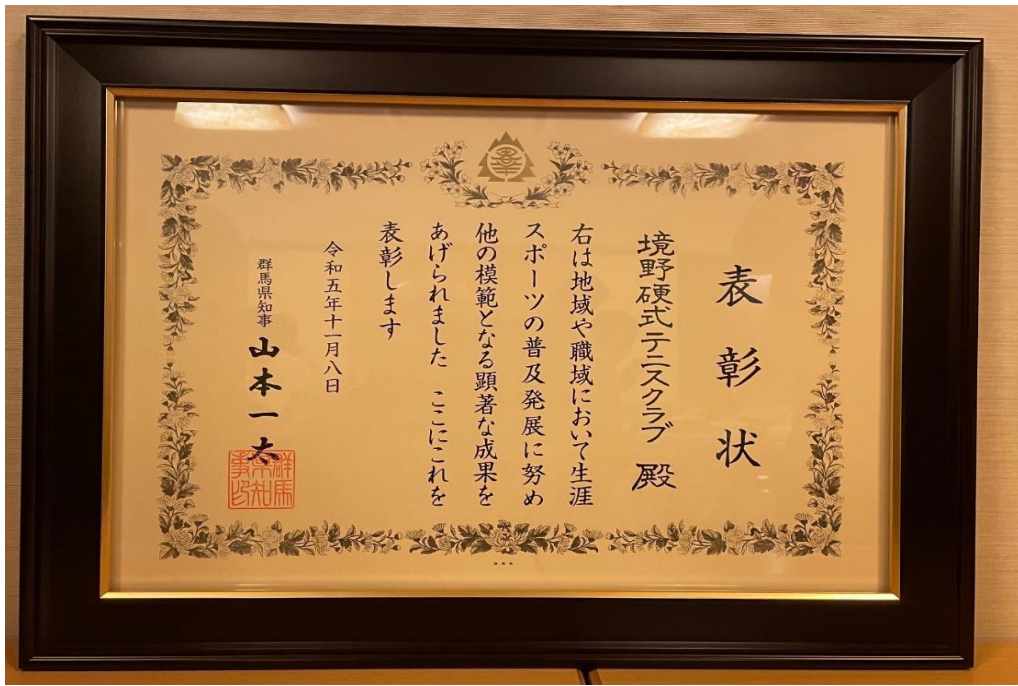 表彰状
境野硬式テニスクラブ 殿
右は地域や職域において生涯
スポーツの普及発展に努め
他の模範となる顕著な成果を
あげられました ここにこれを
表彰します
令和五年十一月八日
群馬県知事 山本一太
群馬県知事印